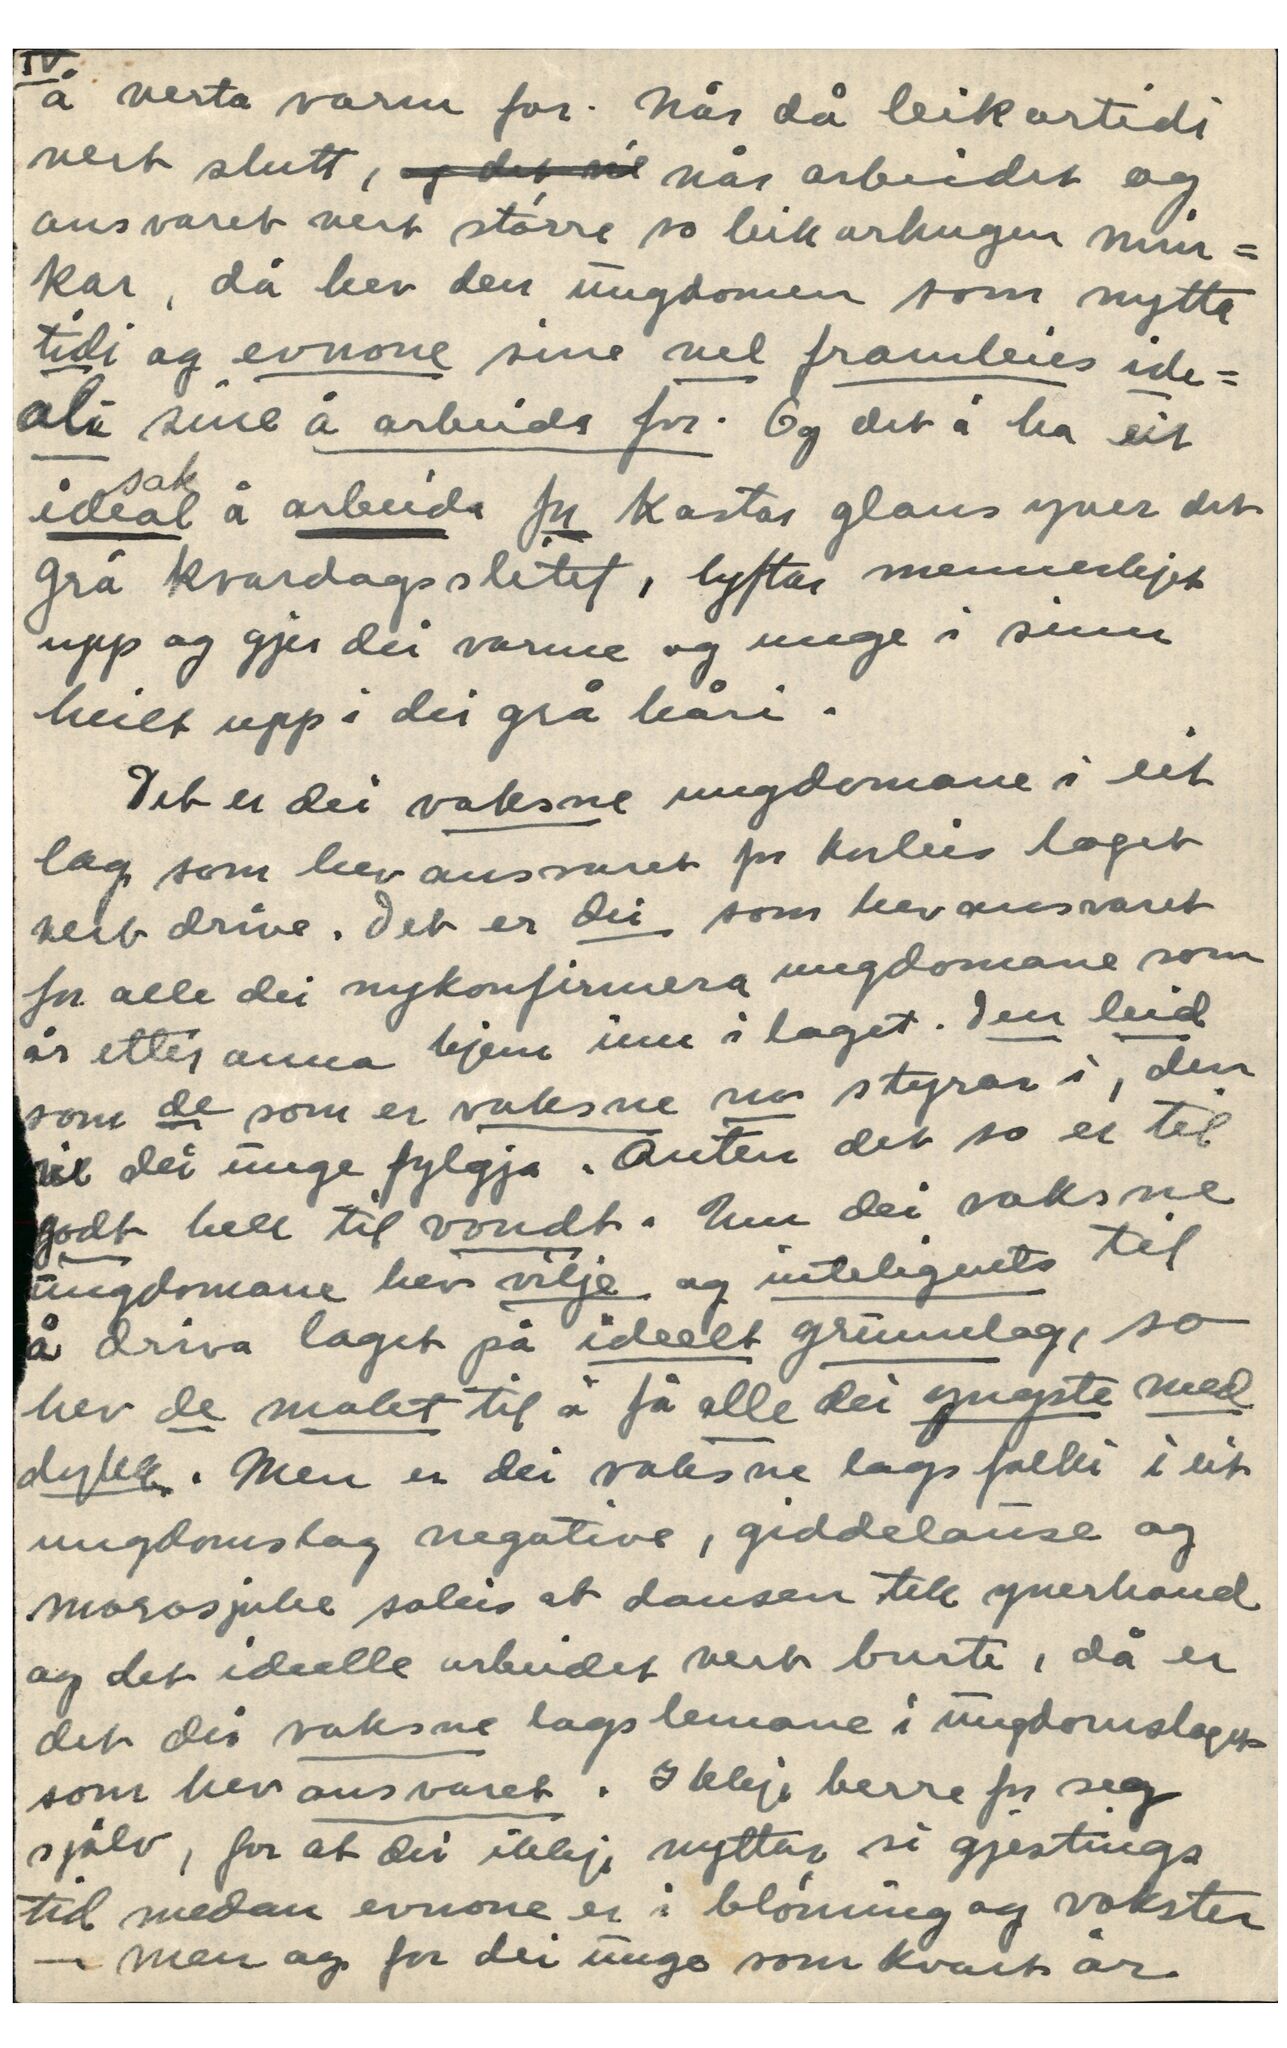 IV
å verta varm for. Når då leikartidi
vert slutt, og det vil når arbeidet og
ansvaret vert større so leikarhugen min=
kar, då hev den ungdomen som nytta
tidi og evnone sine vel framleies ide=
ali sine å arbeida for. Og det å ha eit
sak
ideal å arbeida for kastar glans yver det
grå kvardagsslitet, lyftar menneskjet
upp og gjer dei varme og unge i sinn
heilt upp i dei grå håri.
Det er dei vaksne ungdomane i eit
lag som hev ansvaret for korleis laget
vert drive. Det er dei som hev ansvaret
for alle dei nykonfirmera ungdomane som
år etter anna kjem inn i laget. Den leid
som de som er vaksne no styrar i, den
vil dei unge fylgja. Anten det so er til
godt hell til vondt. Um dei vaksne
ungdomane hev vilje og inteligents til
å driva laget på ideelt grunnlag, so
hev de makt til å få alle dei yngste med
dykk. Men er dei vaksne lagsfolki i eit
ungdomslag negative, giddelause og
morosjuke soleis at dansen tek yverhand
og det ideelle arbeidet vert burte, då er
det dei vaksne lagslemane i ungdomslaget
som hev ansvaret. Ikkje berre for seg
sjølv, for at dei ikkje nyttar si gjestings
tid medan evnone er i bløming og vokster
— men og for dei unge som kvart år